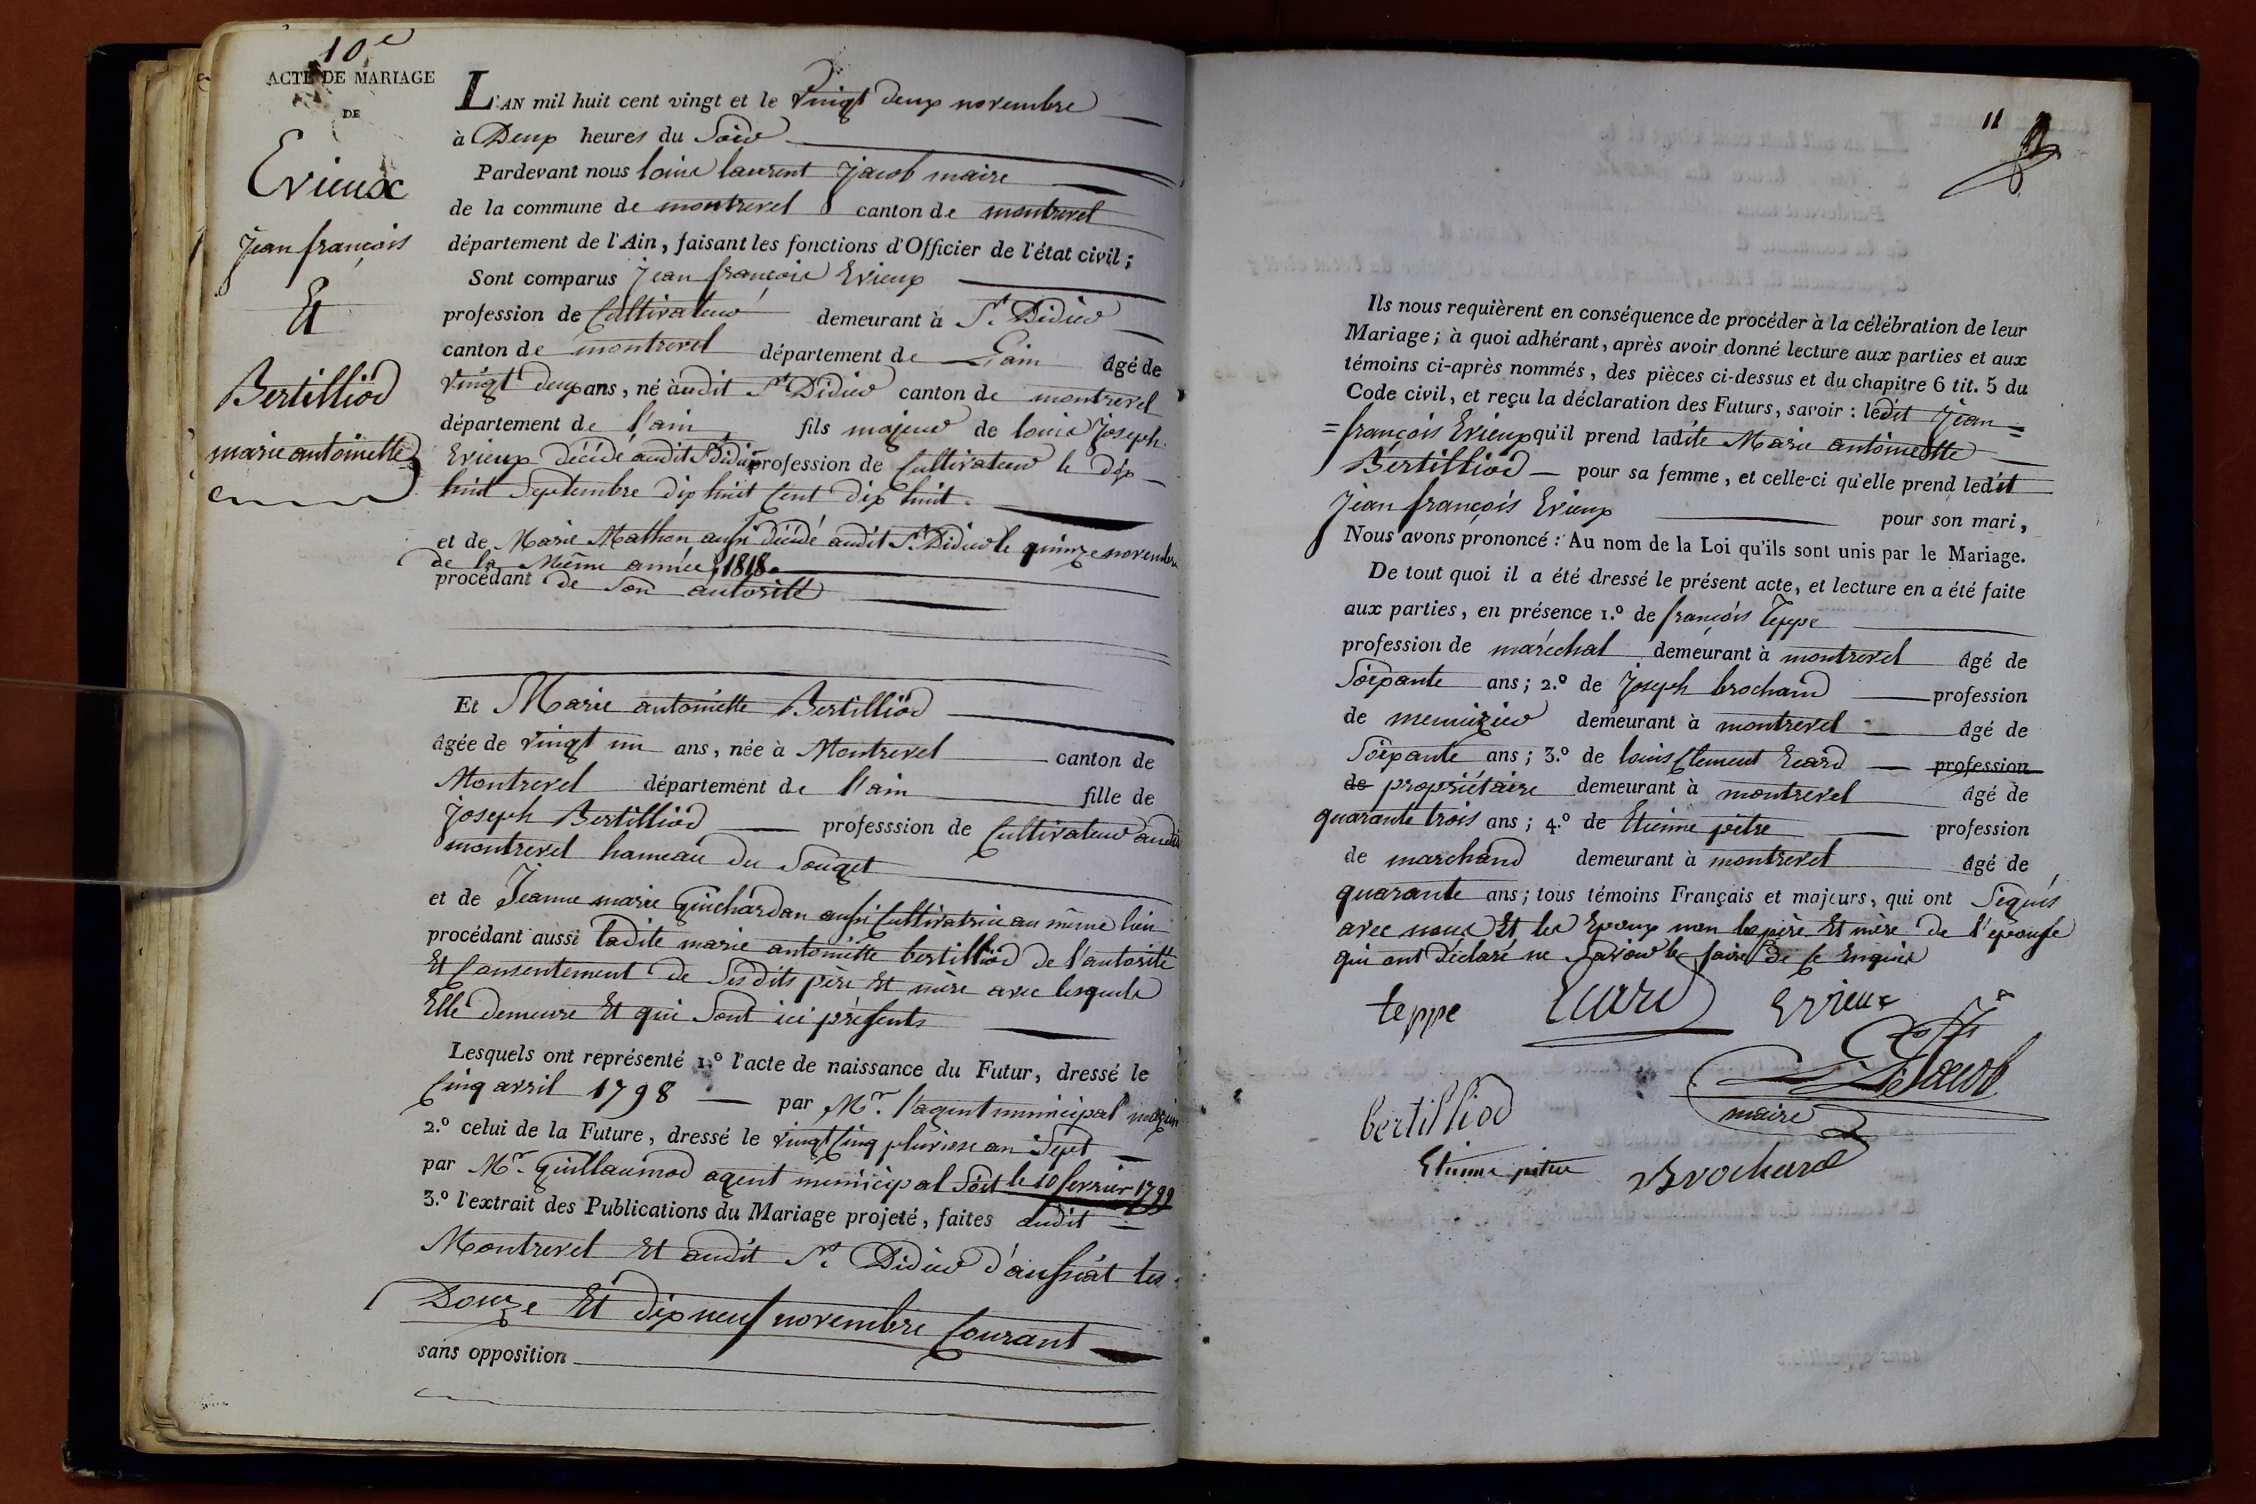 10e
ACTE DE MARIAGE
DE
Evieux
Jean françois
Et
Bertilliod
marie antoinette
L'AN mil huit cent vingt et le Vingt deux novembre
à Deux heures du Soir
Pardevant nous louis laurent Jacob maire
de la commune de montrevel canton de montrevel
département de l'Ain, faisant les fonctions d'Officier de l'état civil;
Sont comparus Jean françois Evieux
profession de Cultivateur demeurant à St. Didier
canton de montrevel département de L'ain âgé de
vingt deux ans, né audit St Didier canton de montrevel
département de l'ain fils majeur de louis Joseph
Evieux décédé audit St Didier profession de Cultivateur le dix
huit Septembre dix huit Cent dix huit.
et de Marie Mathon aussi décédé audit St Didier le quinze novembre
de la Même année 1818.
procédant de Son autorité
Et Marie antoinette Bertilliod
âgée de vingt un ans, née à Montrevel canton de
Montrevel département de l'ain fille de
Joseph Bertilliod professsion de Cultivateur audit
montrevel hameau du Souget
et de Jeanne marie Guichardan aussi Cultivatrice au même lieu
procédant aussi ladite marie antoinette bertilliod de l'autorité
Et Consentement de Ses dits père Et mère avec lesquels
Elle demeure Et qui Sont ici présents
Lesquels ont représenté 1.º l'acte de naissance du Futur, dressé le
Cinq avril 1798 par Mr. l'agent municipal
2.º celui de la Future, dressé le vingt Cinq pluviose an Sept
par Mr. Guillaumod agent municipal Soit le 10 fevrier 1799
3.º l'extrait des Publications du Mariage projeté, faites audit
Montrevel Et audit St. Didier d'aussiat les
Douze Et dix neuf novembre Courant
sans opposition
11
Ils nous requièrent en conséquence de procéder à la célébration de leur
Mariage; à quoi adhérant, après avoir donné lecture aux parties et aux
témoins ci-après nommés, des pièces ci-dessus et du chapitre 6 tit. 5 du
Code civil, et reçu la déclaration des Futurs, savoir: ledit Jean
=françois Evieux qu'il prend ladite Marie antoinette
Bertilliod pour sa femme, et celle-ci qu'elle prend ledit
Jean françois Evieux pour son mari,
Nous avons prononcé: Au nom de la Loi qu'ils sont unis par le Mariage.
De tout quoi il a été dressé le présent acte, et lecture en a été faite
aux parties, en présence 1.º de françois Teppe
profession de maréchal demeurant à montrevel âgé de
Soixante ans; 2.º de Joseph brochard profession
de menuizier demeurant à montrevel âgé de
Soixante ans; 3.º de louis Clement Ecard profession
de propriétaire demeurant à montrevel âgé de
quarante trois ans; 4.º de Etienne pitre profession
de marchand demeurant à montrevel âgé de
quarante ans; tous témoins Français et majeurs, qui ont Signés
avec nous Et les Epoux non les père Et mère de l'épouse
qui ont déclaré ne Savoir le faire de ce Enquis
teppe Ecard Evieux
L L Jacob
maire
bertilliod
Etienne pitre Brochard